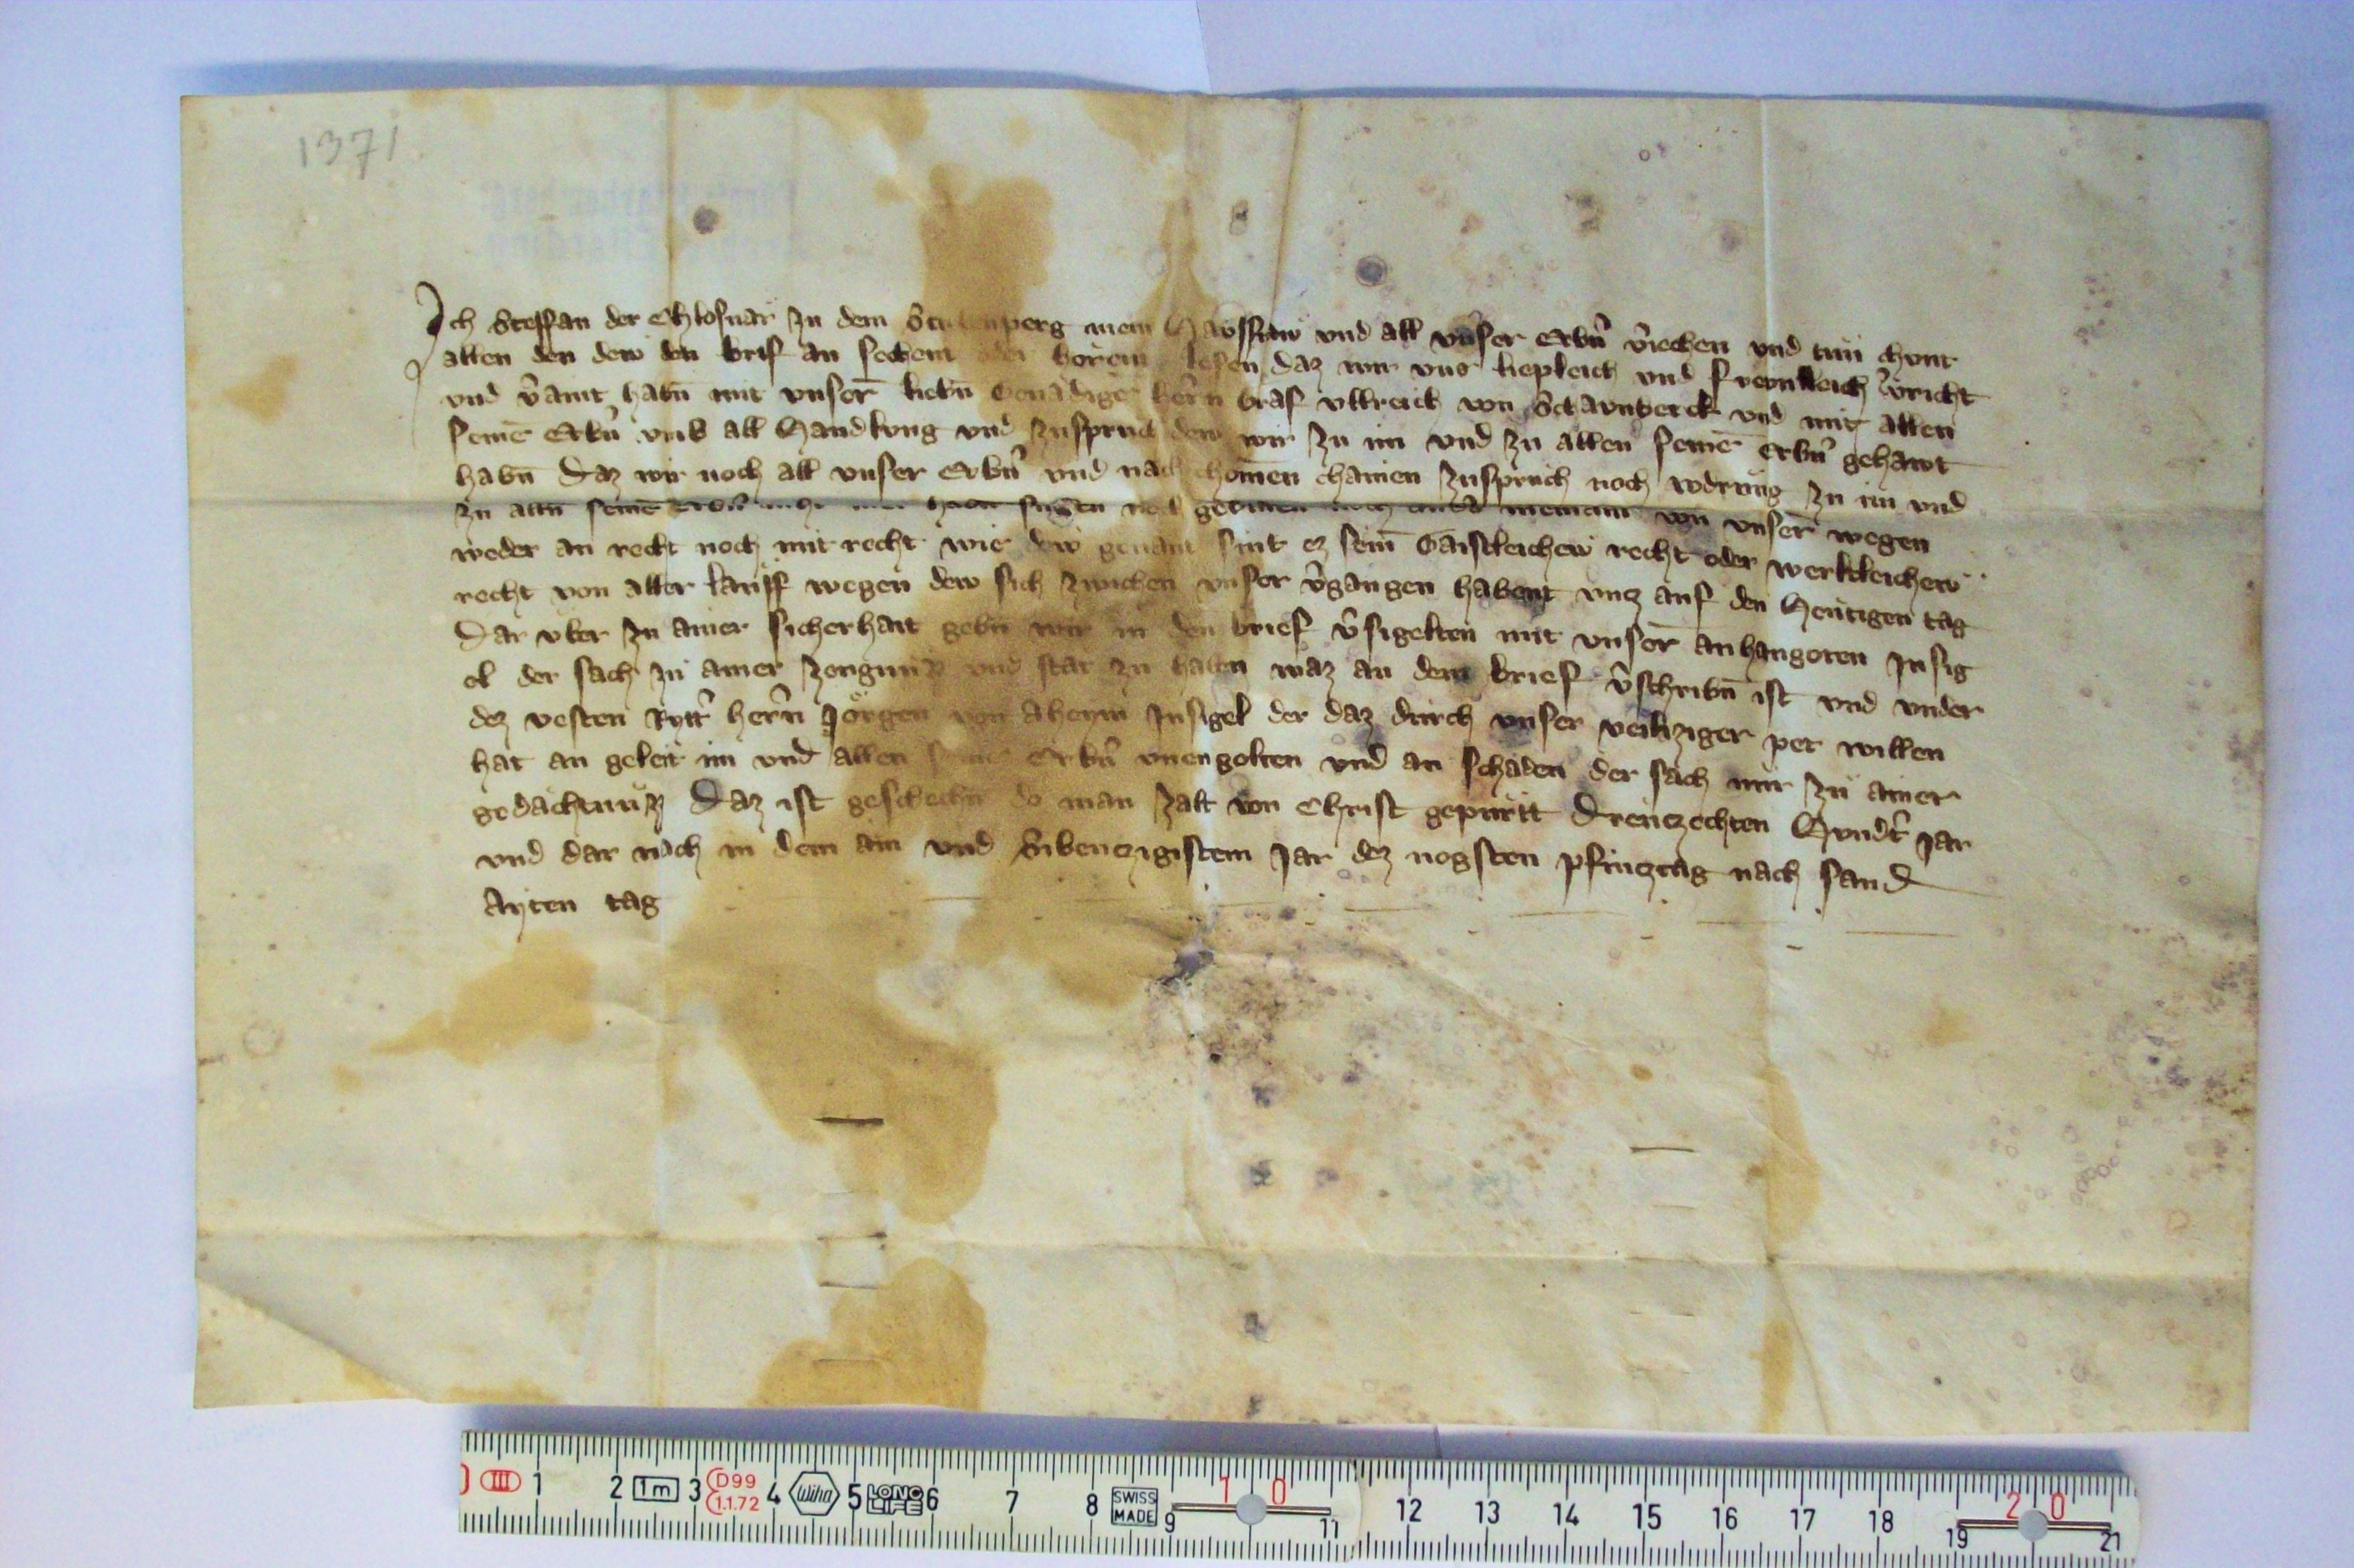 1371
Ich Steffan der Chlosnär zu dem mein Havsfraw vnd all vnser Erbn̄ v̄iechen vnd tun chunt
allen den dew den brif an sechent oder horent lesen daz wir vns liepleich vnd frevntleich v̄richt
vnd v̄aint habn̄ mit vnserr̄ liebn̄ Genädigē herrn̄ Graf vllreich von Schavnberck vnd mit allen
seinē Erbn̄ vmb all Handlvng vnd zuspruch dew wir zu im vnd zu allen seinē Erbn̄ gehawt
habn̄ Daz wir noch all vnser Erbn̄ vnd nach chömen chainen zuspruch noch vodrung zu im vnd
zu alln̄ seinē Erbn̄ habn suln noch niemant von vnserr̄ wegen
weder an recht noch mit recht wie dew genant sint ez sein̄ Gaistleichew recht oder werltleichew
recht von aller läuff wegen dew sich zwichen vnser v̄gangen habent vncz auf den Heutigen tag
Dar vber zu ainer sicherhait gebn̄ wir in den brief v̄sigelten mit vnserr̄ anhangeten Insig
el der sach zu ainer zeugnüzz vnd stät zu halten waz an dem brief v̄schribn̄ ist vnd vnder
dez vesten Rytt̄ herrn̄ Jörgen von Aheym Insigel der daz durch vnser veiliziger pet willen
hat an geleit im vnd allen seinē Erbn̄ vnengolten vnd an schaden der sach nür zu ainer
gedächtnüzz Daz ist geschechn̄ do man zalt von Christ gepürtt Dreuczechten Hvndt̄ Jar
vnd dar nach in dem ain vnd Sibenczigistem Jar dez nogsten pfincztag nach sand
Ayten tag
III 1 2 1m 3 D99 1.1.72 4 Wiha 5 LONG LIFE 6 7 8 SWISS MADE 9 10 11 12 13 14 15 16 17 18 19 20 21